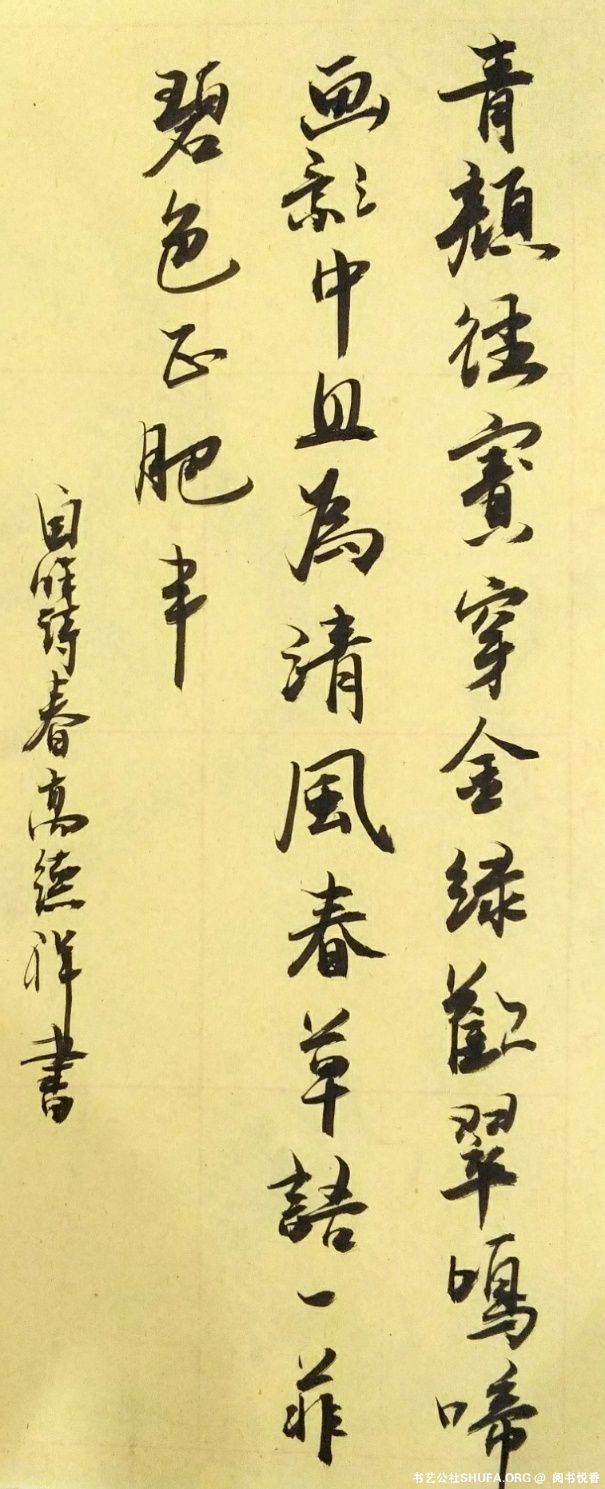 青顏往賓穿金綠歡翠鳴啼
画影中且為清風春草語一菲
碧色正肥丰
自作詩春高德祥書
书艺公社SHUFA.ORG @ 阅书悦香